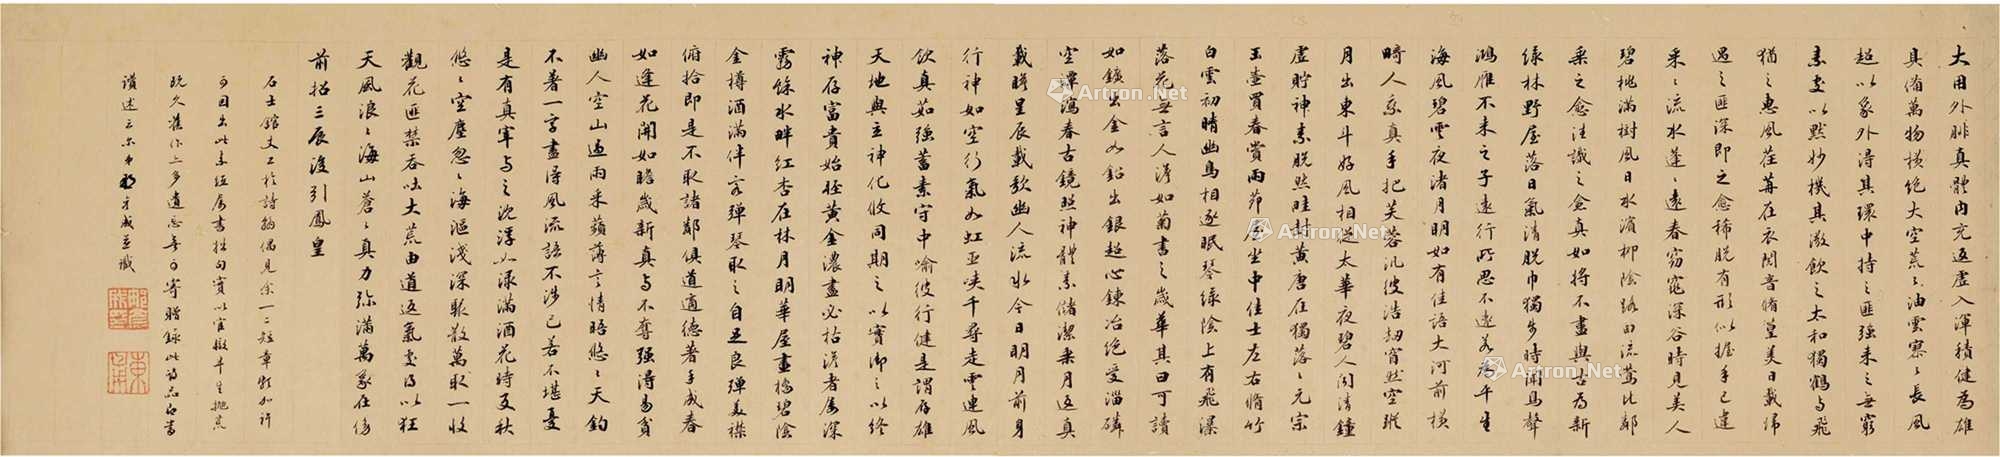 大用外腓真體內充返虛入渾積健為雄
具備萬物橫絕太空荒荒油雲寥寥長風
超以象外得其環中持之匪強來之無窮
素處以默妙機其微飲之太和獨鶴與飛
猶之惠風荏苒在衣閱音脩篁美曰載歸
遇之匪深即之愈稀脫有形似握手已違
采采流水蓬蓬遠春窈窕深谷時見美人
碧桃滿樹風日水濱柳陰路曲流鶯比鄰
乘之愈往識之愈真如將不盡與古為新
綠林野屋落日氣清脫巾獨步時聞鳥聲
鴻雁不來之子遠行所思不遠若為平生
海風碧雲夜渚月明如有佳語大河前橫
畸人乘真手把芙蓉汎彼浩劫窅然空蹤
月出東斗好風相從太華夜碧人聞清鐘
虛貯神素脫然畦封黃唐在獨落落元宗
玉壺買春賞雨茆屋坐中佳士左右脩竹
白雲初晴幽鳥相逐眠琴綠陰上有飛瀑
落花無言人澹如菊書之歲華其曰可讀
如鑛出金如鉛出銀超心鍊冶絕愛淄磷
空潭瀉春古鏡照神體素儲潔乘月返真
載瞻星辰載歌幽人流水今日明月前身
行神如空行氣如虹巫峽千尋走雲連風
飲真茹強蓄素守中喻彼行健是謂存雄
天地與立神化攸同期之以實御之以終
神存富貴始輕黃金濃盡必枯淡者屢深
霧餘水畔紅杏在林月明華屋畫橋碧陰
金樽酒滿伴客彈琴取之自足良殫美襟
俯拾即是不取諸鄰俱道適德著手成春
如逢花開如瞻歲新真與不奪強得易貧
幽人空山過雨采蘋薄言情晤悠悠天鈞
不著一字盡得風流語不涉己若不堪憂
是有真宰與之沈浮如淥滿酒花時反秋
悠悠空塵忽忽海漚淺深聚散萬取一收
觀花匪禁吞吐大荒由道返氣處得以狂
天風浪浪海山蒼蒼真力彌滿萬象在傍
前招三辰後引鳳皇
石士館丈工於詩翰偶見余一二短章輒加許
可因出此素經屬書拙句實以官轍半生拋荒
既久舊作亦多遺忘無可寄贈錄此詩品

Artron.Net
Artron.Net
Artron.Net